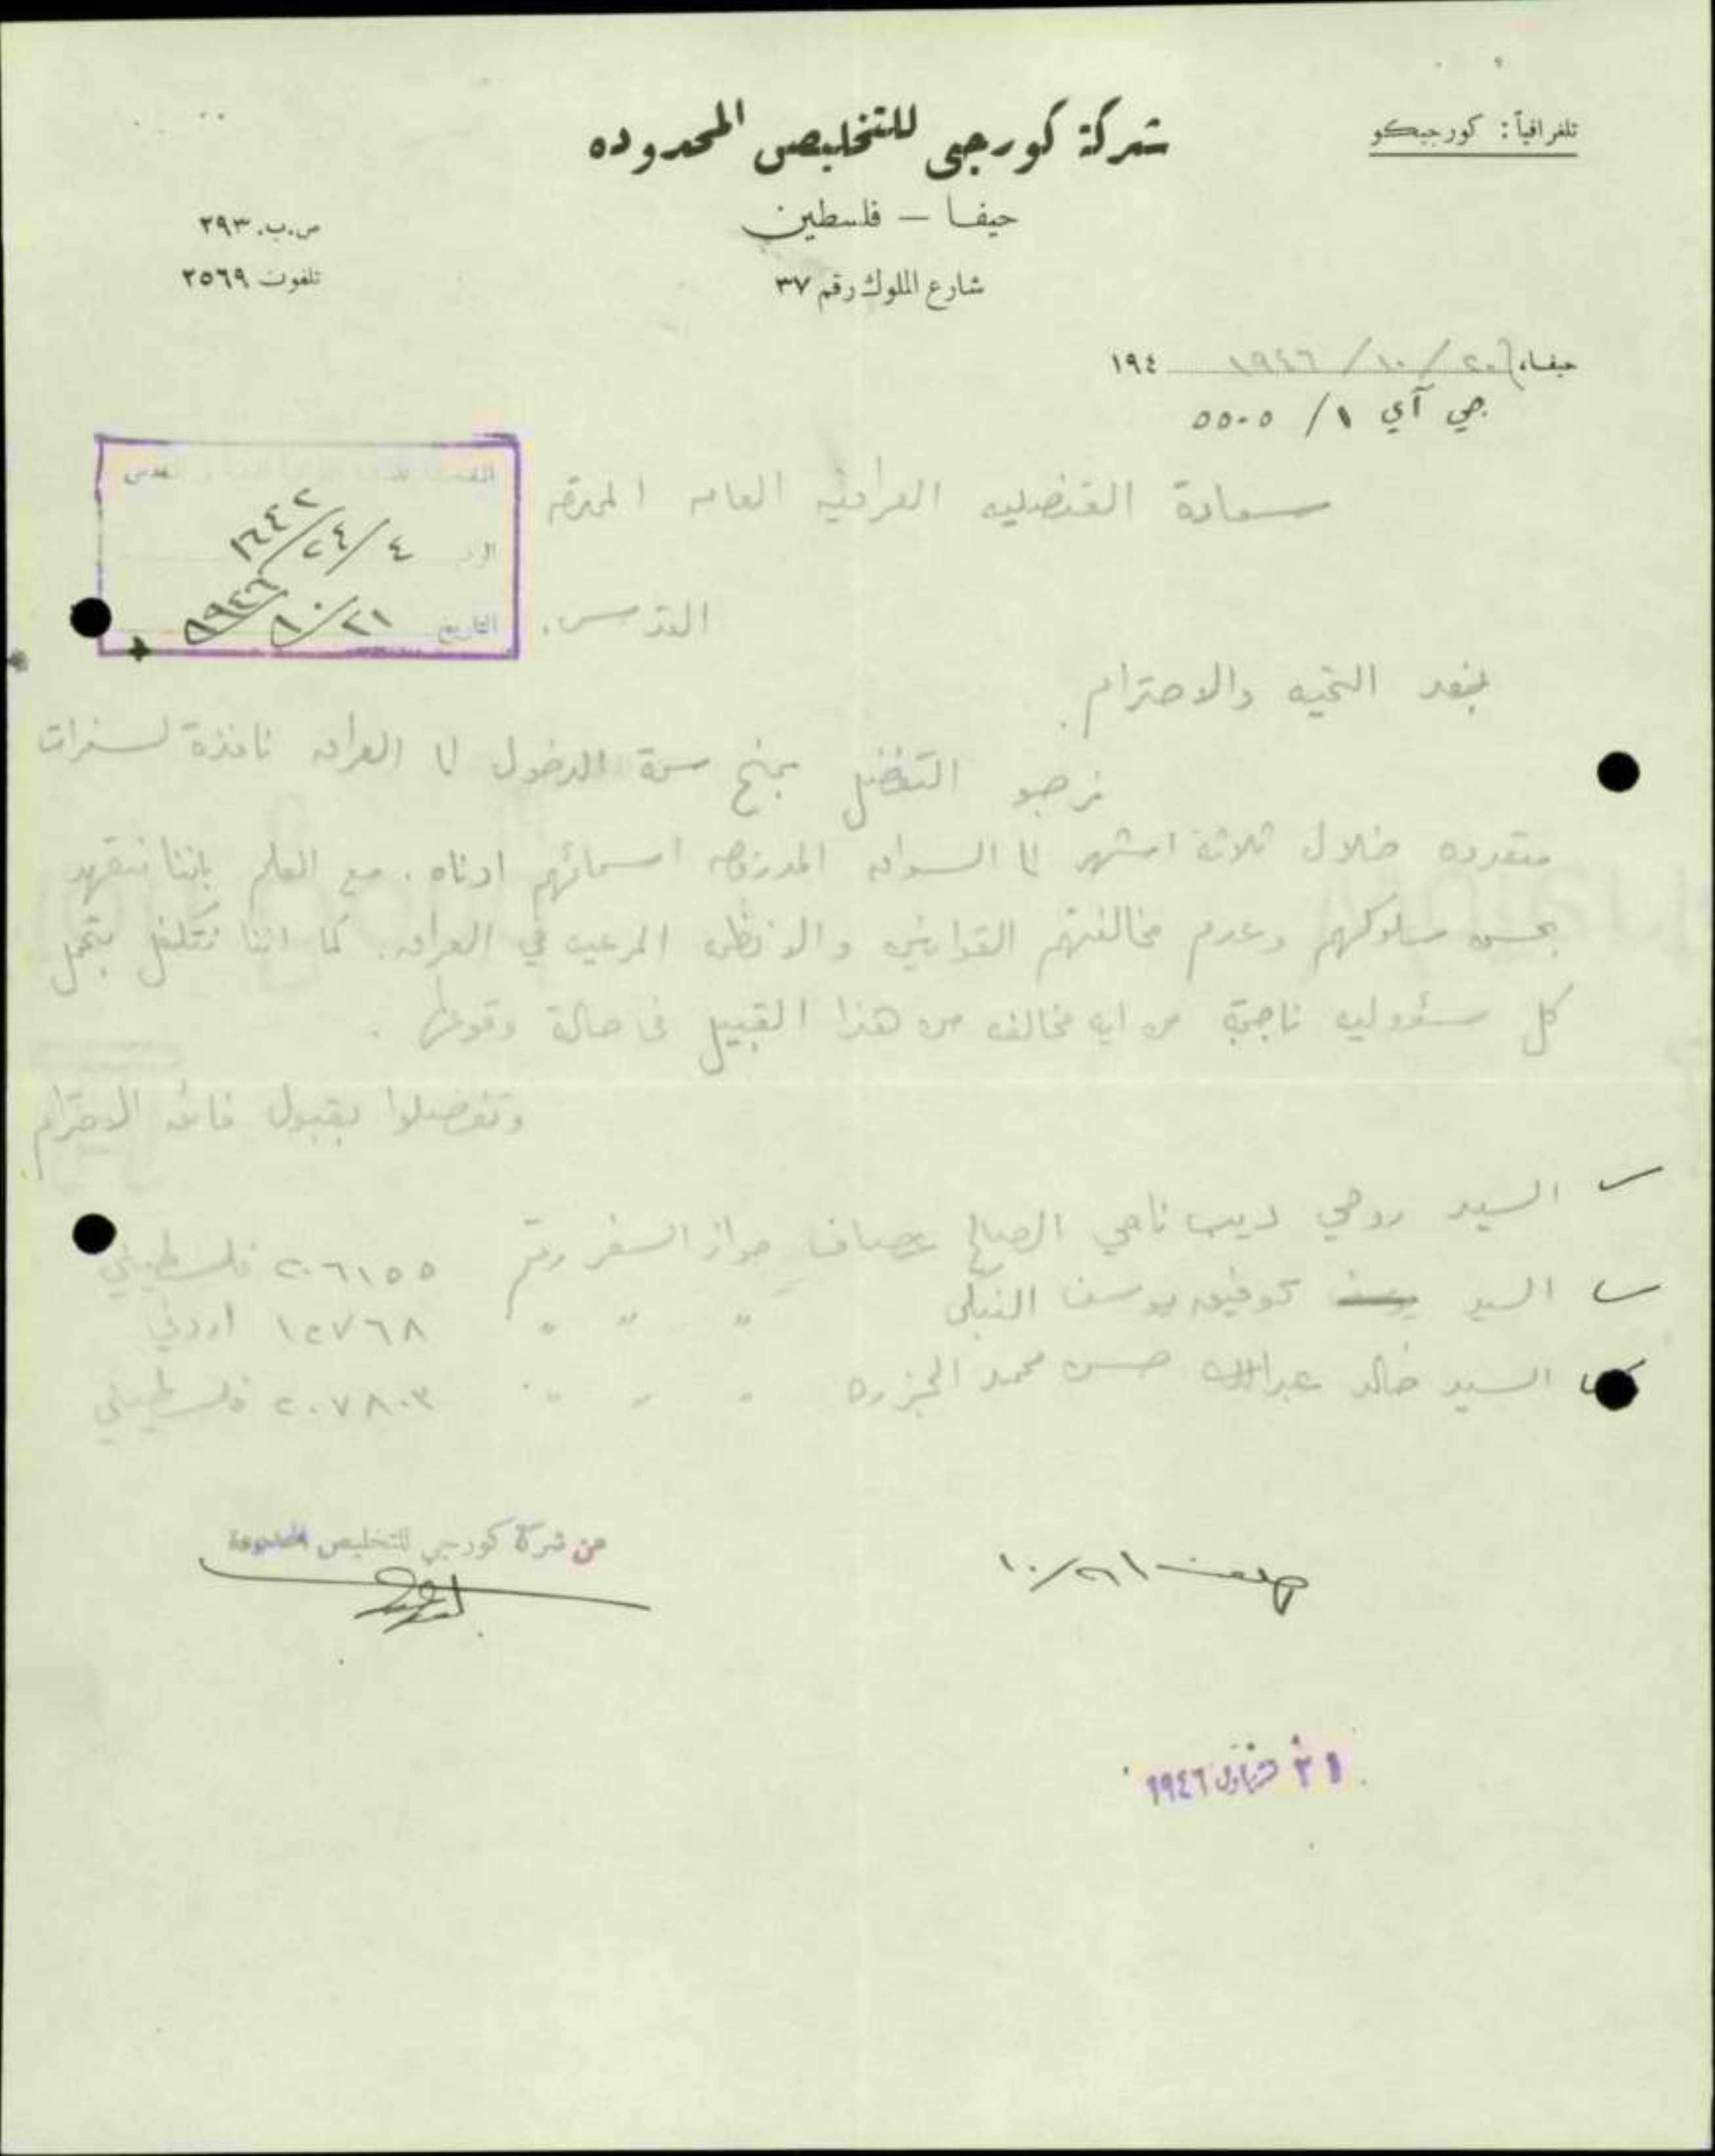 تلغرافياً: كورجيكو
شركة كورجي للتخليص المحدوده
حيفا – فلسطين
شارع الملوك رقم ٣٧
ص.ب. ٢٩٣
تلفون ٢٥٦٩
حيفا، ٢٠/١٠/١٩٤٦ ١٩٤
جي آي ١/ ٥٥٠٥
القدس
٤/٢٤/١٦٤٢
التاريخ ٢١/١٠/١٩٤٦
سعادة القنصليه العراقيه العامه المحترمه
القدس.
بعد التحيه والاحترام.
نرجو التفضل بمنح سمة الدخول الى العراق نافذة لسفرات
متعدده خلال ثلاثة اشهر الى السواق المدرجه اسمائهم ادناه. مع العلم باننا نتعهد
بحسن سلوكهم وعدم مخالفتهم القوانين والانظمه المرعيه في العراق. كما اننا نتكفل بتحمل
كل مسؤوليه ناجمة من ايه مخالفه من هذا القبيل في حالة وقوعها.
وتفضلوا بقبول فائق الاحترام.
السيد روحي ديب ناجي الصالح عساف جواز السفر رقم ٢٠٦١٥٥ فلسطيني
السيد توفيق يوسف النبكي " " " ١٢٧٦٨ اردني
السيد خالد عبدالله حسن محمد الجزره " " " ٢٠٧٨٠٣ فلسطيني
من شركة كورجي للتخليص المحدودة
٢١/١٠
٢١ تشرين اول ١٩٤٦